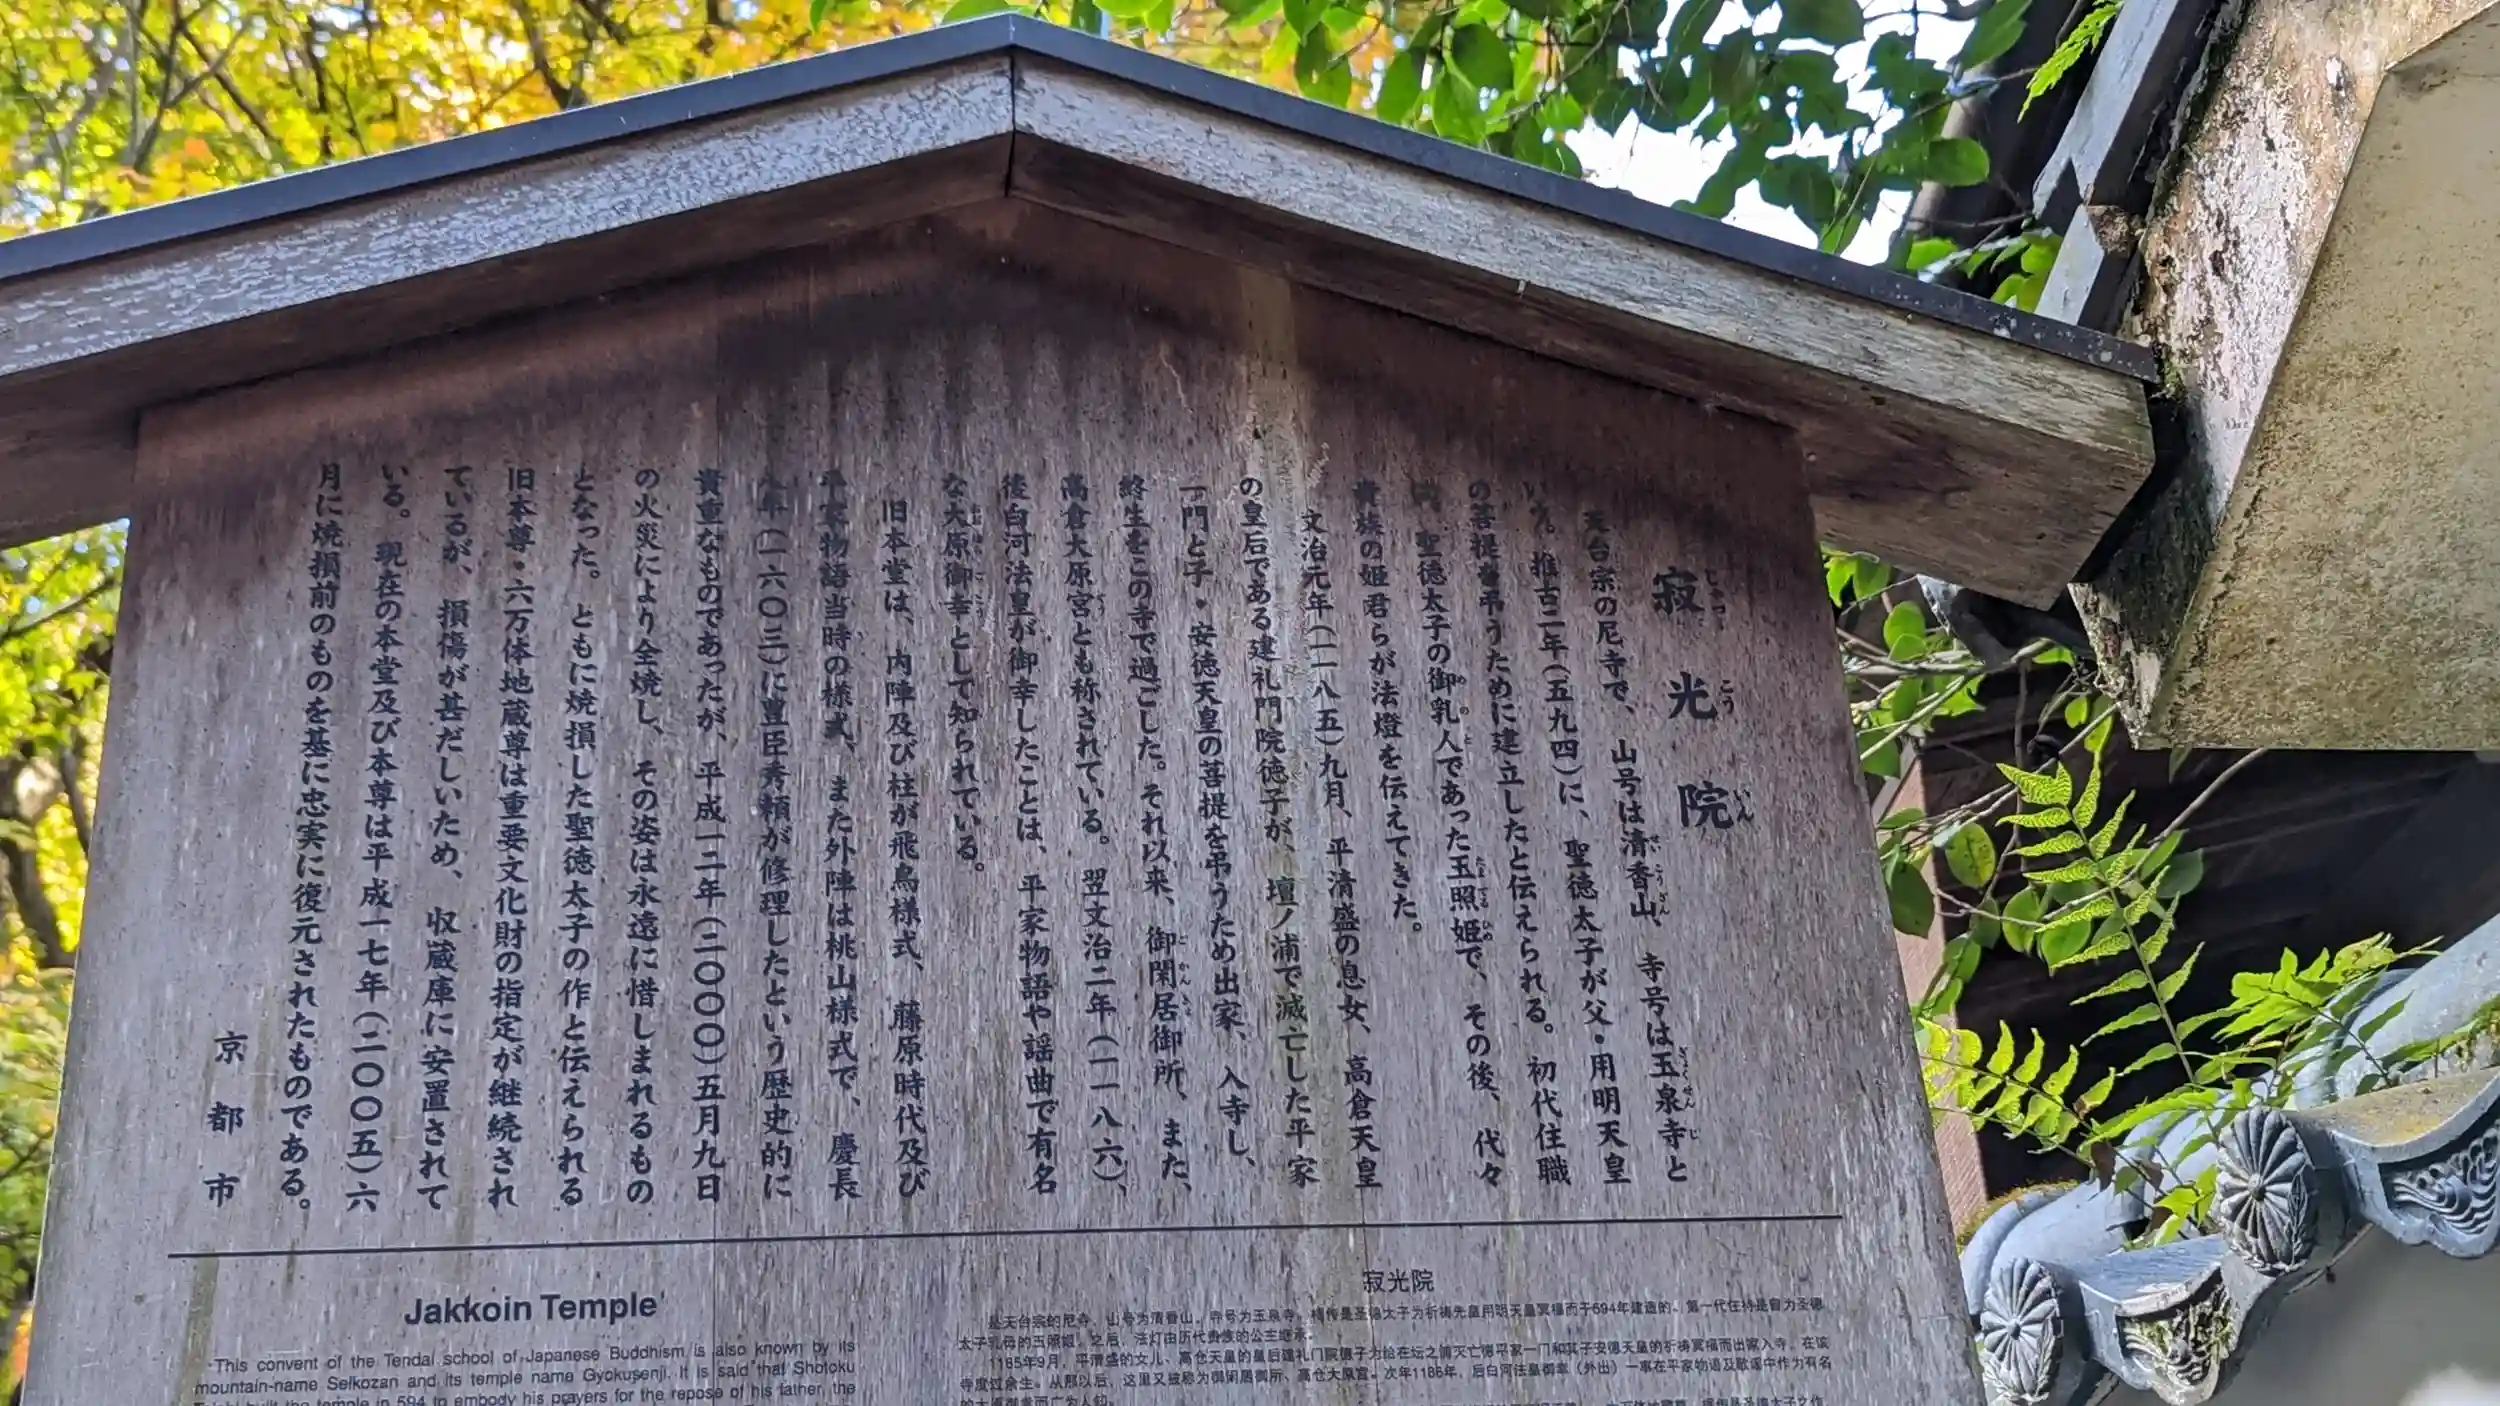 寂光院
天台宗の尼寺で、山号は清香山、寺号は玉泉寺と
いう。推古二年（五九四）に、聖徳太子が父・用明天皇
の菩提を弔うために建立したと伝えられる。初代住職
は、聖徳太子の御乳人であった玉照姫で、その後、代々
貴族の姫君らが法燈を伝えてきた。
文治元年（一一八五）九月、平清盛の息女、高倉天皇
の皇后である建礼門院徳子が、壇ノ浦で滅亡した平家
一門と子・安徳天皇の菩提を弔うため出家、入寺し、
終生をこの寺で過ごした。それ以来、御閑居御所、また、
高倉大原宮とも称されている。翌文治二年（一一八六）、
後白河法皇が御幸したことは、平家物語や謡曲で有名
な大原御幸として知られている。
旧本堂は、内陣及び柱が飛鳥様式、藤原時代及び
平家物語当時の様式、また外陣は桃山様式で、慶長
八年（一六〇三）に豊臣秀頼が修理したという歴史的に
貴重なものであったが、平成一二年（二〇〇〇）五月九日
の火災により全焼し、その姿は永遠に惜しまれるもの
となった。ともに焼損した聖徳太子の作と伝えられる
旧本尊・六万体地蔵尊は重要文化財の指定が継続され
ているが、損傷が甚だしいため、収蔵庫に安置されて
いる。現在の本堂及び本尊は平成一七年（二〇〇五）六
月に焼損前のものを基に忠実に復元されたものである。
京都市
Jakkoin Temple
This convent of the Tendai school of Japanese Buddhism is also known by its
mountain-name Seikozan and its temple name Gyokusenji. It is said that Shotoku
built the temple in 594 to embody his prayers for the repose of his father, the
寂光院
是天台宗的尼寺，山号为清香山，寺号为玉泉寺。相传是圣德太子为祈祷先皇用明天皇冥福而于594年建造的。第一代住持是曾为圣德
太子乳母的玉照姬。之后，法灯由历代贵族的公主继承。
1185年9月，平清盛的女儿、高仓天皇的皇后建礼门院德子为给在坛之浦灭亡德平家一门和其子安德天皇的祈祷冥福而出家入寺，在该
寺度过余生。从那以后，这里又被称为御闲居御所、高仓大原宫。次年1186年，后白河法皇御幸（外出）一事在平家物语及歌谣中作为有名
的大原御幸而广为人知。